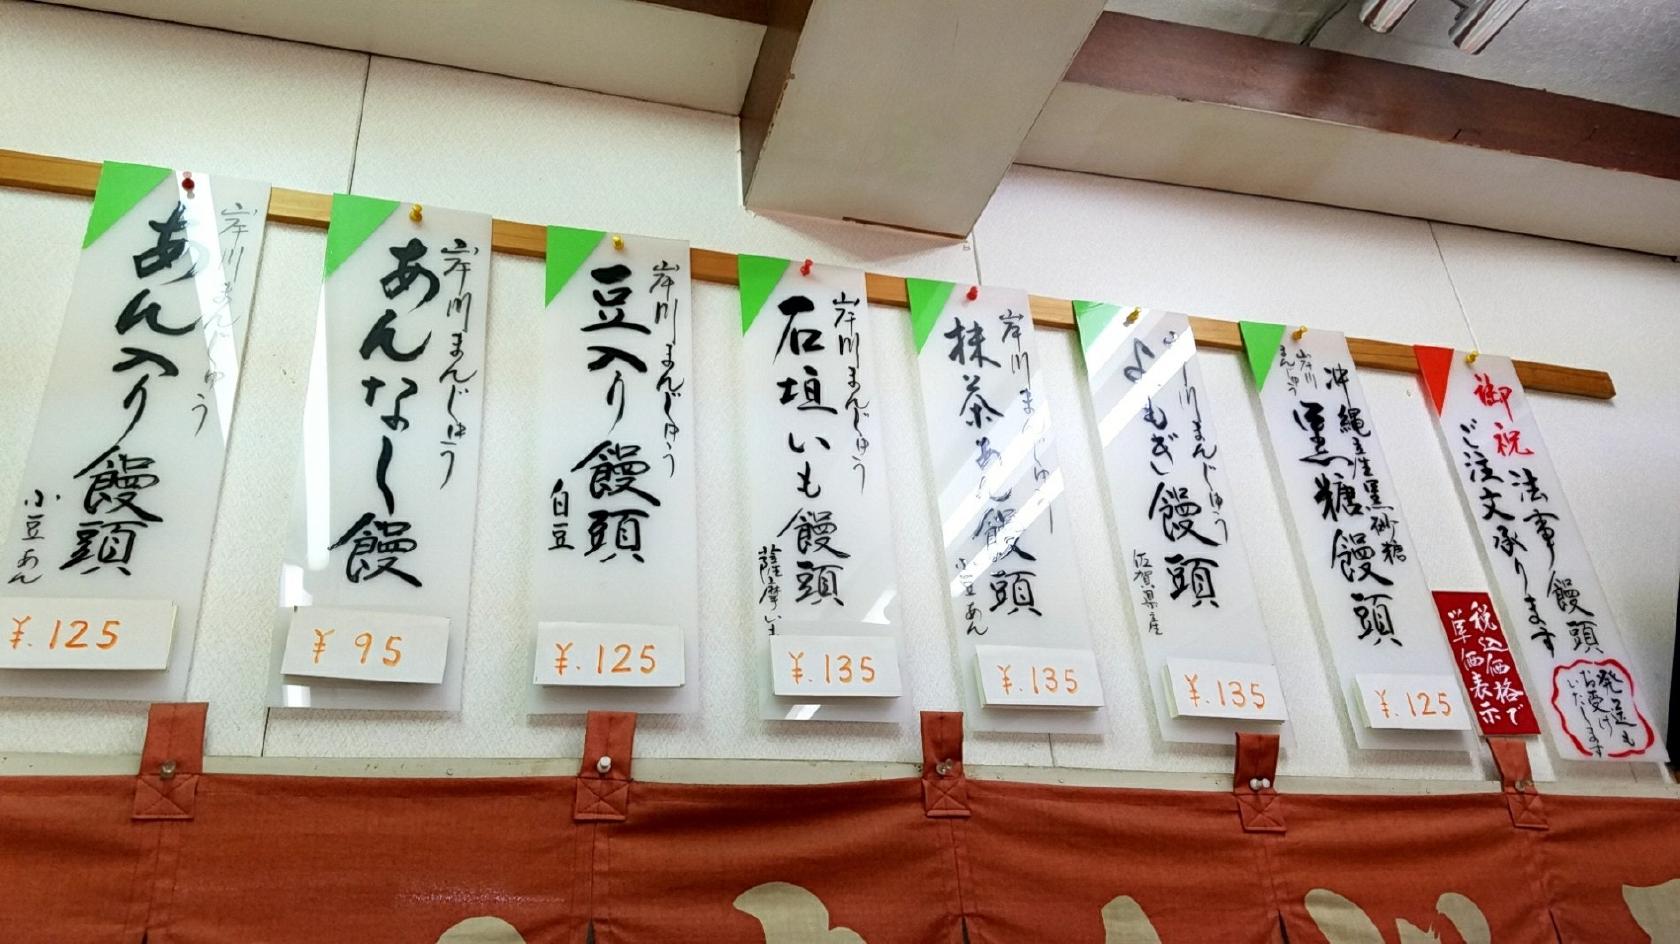 岸川まんじゅう
あん入り饅頭
小豆あん
¥.125
岸川まんじゅう
あんなし饅
¥95
岸川まんじゅう
豆入り饅頭
白豆
¥.125
岸川まんじゅう
石垣いも饅頭
薩摩いも
¥.135
岸川まんじゅう
抹茶あん饅頭
小豆あん
¥.135
岸川まんじゅう
よもぎ饅頭
佐賀県産
¥.135
沖縄産黒砂糖
岸川
まんじゅう
黒糖饅頭
¥.125
御祝 法事 饅頭
ご注文承ります
税込価格で
単価表示
発送も
お受け
いたします